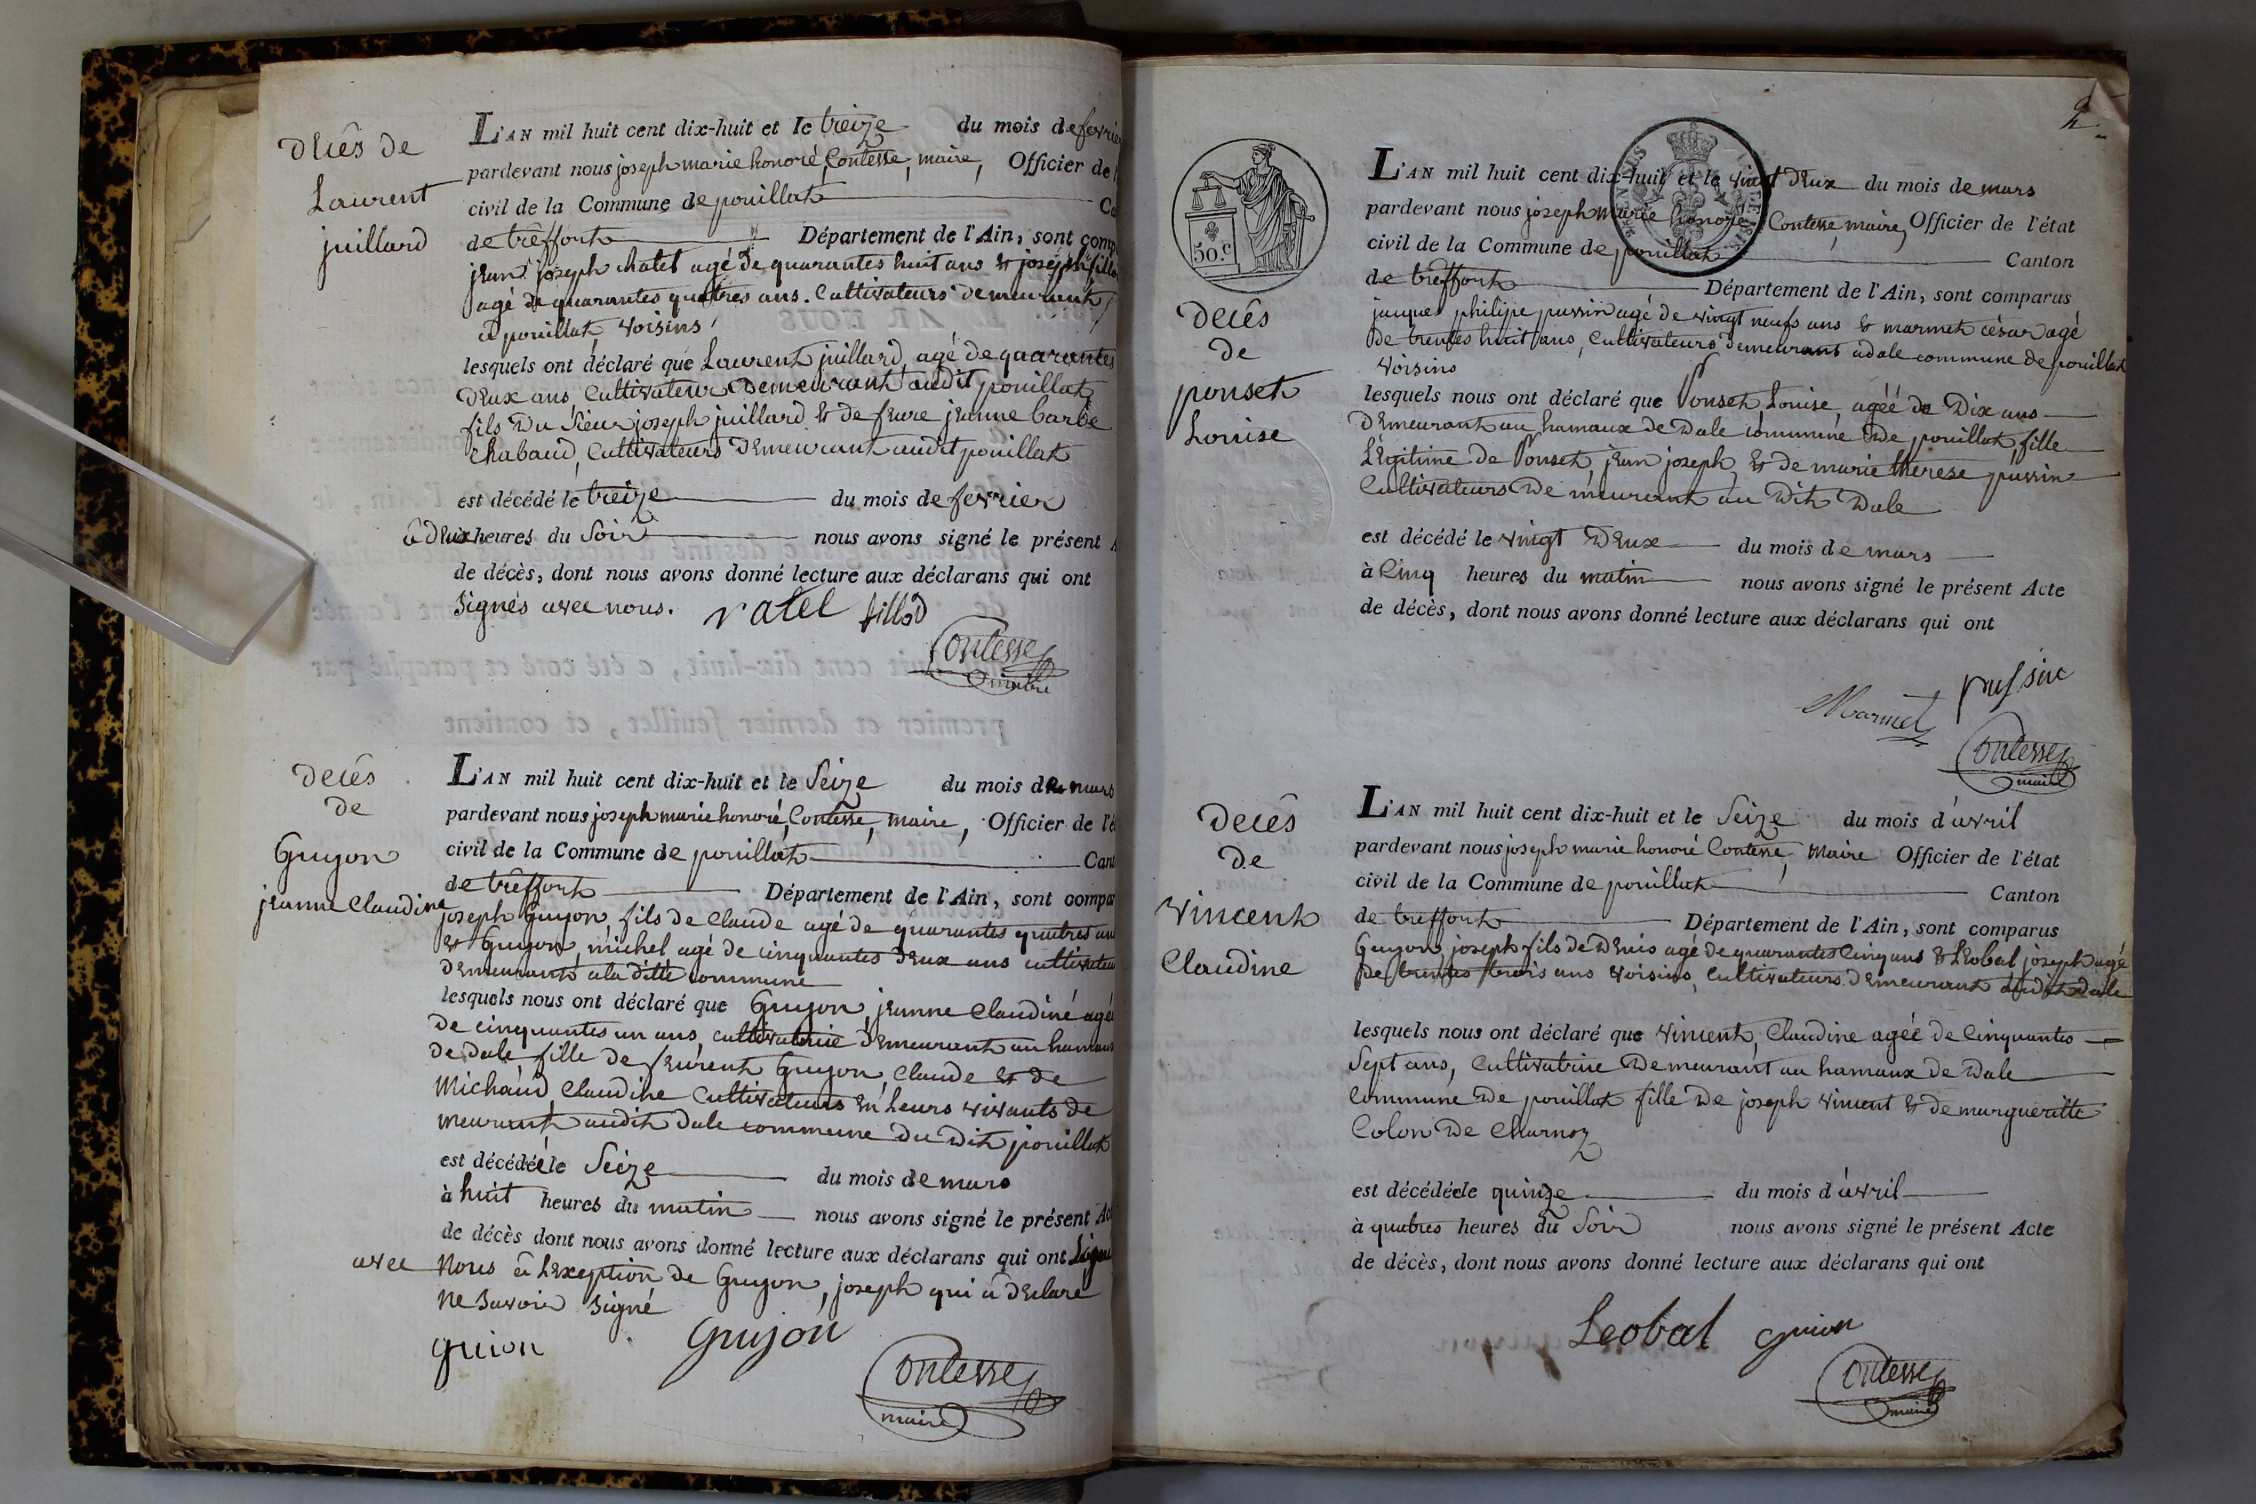 décès de
Laurent
juillard
L'AN mil huit cent dix-huit et le treize du mois de fevrier
pardevant nous joseph marie honoré Contesse, maire, Officier de l'
civil de la Commune de pouillat Ca
de trêffort Département de l'Ain, sont comp
jean joseph chatel agé de quarantes huit ans & joseph fillo
agé de quarantes quatres ans. Cultivateurs demeurent
a pouillat, voisins
lesquels ont déclaré que Laurent juillard, agé de quarantes
deux ans, Cultivateur demeurant audit pouillat
fils du Sieur joseph juillard & de feue jeanne barbe
chabaud, Cultivateurs demeurant audit pouillat
est décédé le treize du mois de fevrier
à deux heures du Soir nous avons signé le présent A
de décès, dont nous avons donné lecture aux déclarans qui ont
signés avec nous. fillod
Contesse
maire
decês
de
Guyon
jeanne Claudine
L'AN mil huit cent dix-huit et le Seize du mois de mars
pardevant nous joseph marie honoré, Contesse, maire, Officier de l'é
civil de la Commune de pouillat Cant
de trêffort Département de l'Ain, sont compar
joseph Guyon, fils de Claude agé de quarantes quatres ans
& Guyon, michel agé de cinquantes deux ans cultivateu
demeurants a la ditte commune
lesquels nous ont déclaré que Guyon, jeanne Claudine agée
de cinquantes un ans, cultivatrice demeurant au hamaux
de dale fille de feurent Guyon, Claude & de
Michaud, Claudine Cultivateurs en Leurs vivants de
meurant audit dale commune du dit pouillat
est décédée le Seize du mois de mars
à huit heures du matin nous avons signé le présent Ac
de décès dont nous avons donné lecture aux déclarans qui ont Signé
avec Nous à L'exeption de Guyon, joseph qui a declaré
ne savoir signé
guion Guyon
Contesse
maire
2
50.c
Decês
de
ponset
Louise
L'AN mil huit cent dix-huit et le vingt deux du mois de mars
pardevant nous joseph marie honoré Contesse, maire, Officier de l'état
civil de la Commune de pouillat Canton
de trêffort Département de l'Ain, sont comparus
jaques philipe pussin agé de vingt neufs ans & marmet césar agé
de trentes huit ans, Cultivateurs demeurant a dale commune de pouillat
voisins
lesquels nous ont déclaré que Ponset, Louise, agéé de Dix ans
Demeurant au hamaux de Dale commune de pouillat, fille
Légitime de Ponset, jean joseph, & de marie therese pussin
Cultivateurs De meurant au Dit Dale
est décédé le vingt Deux du mois de mars
à Cinq heures du matin nous avons signé le présent Acte
de décès, dont nous avons donné lecture aux déclarans qui ont
Marmet pussin
Contesse
maire
Decês
de
Vincent
Claudine
L'AN mil huit cent dix-huit et le Seize du mois d'avril
pardevant nous joseph marie honoré Contesse, Maire Officier de l'état
civil de la Commune de pouillat Canton
de treffort Département de l'Ain, sont comparus
Guyon, joseph fils de Denis agé de quarantes Cinq ans & Leobal joseph agé
de trentes trois ans voisins, Cultivateurs demeurant audit Dale
lesquels nous ont déclaré que vincent, Claudine agéé de Cinquantes
Sept ans, Cultivatrice Demeurant au hamaux de Dale
Commune de pouillat fille de joseph vincent & de margueritte
Colon de Charnoz
est décédée le quinze du mois d'avril
à quatres heures du Soir nous avons signé le présent Acte
de décès, dont nous avons donné lecture aux déclarans qui ont
Leobal guion
Contesse
maire